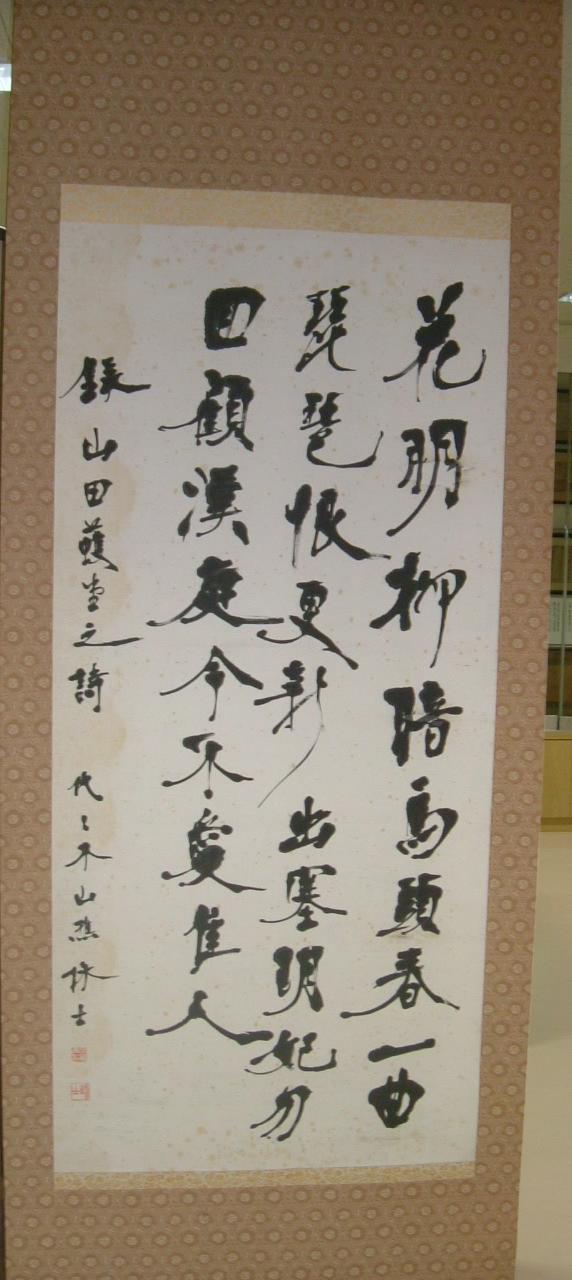 花明柳暗馬頭春一曲
琵琶恨更新出塞明妃勿
回顧漢庭今不愛佳人
録山田蠖堂之詩 代々木山樵